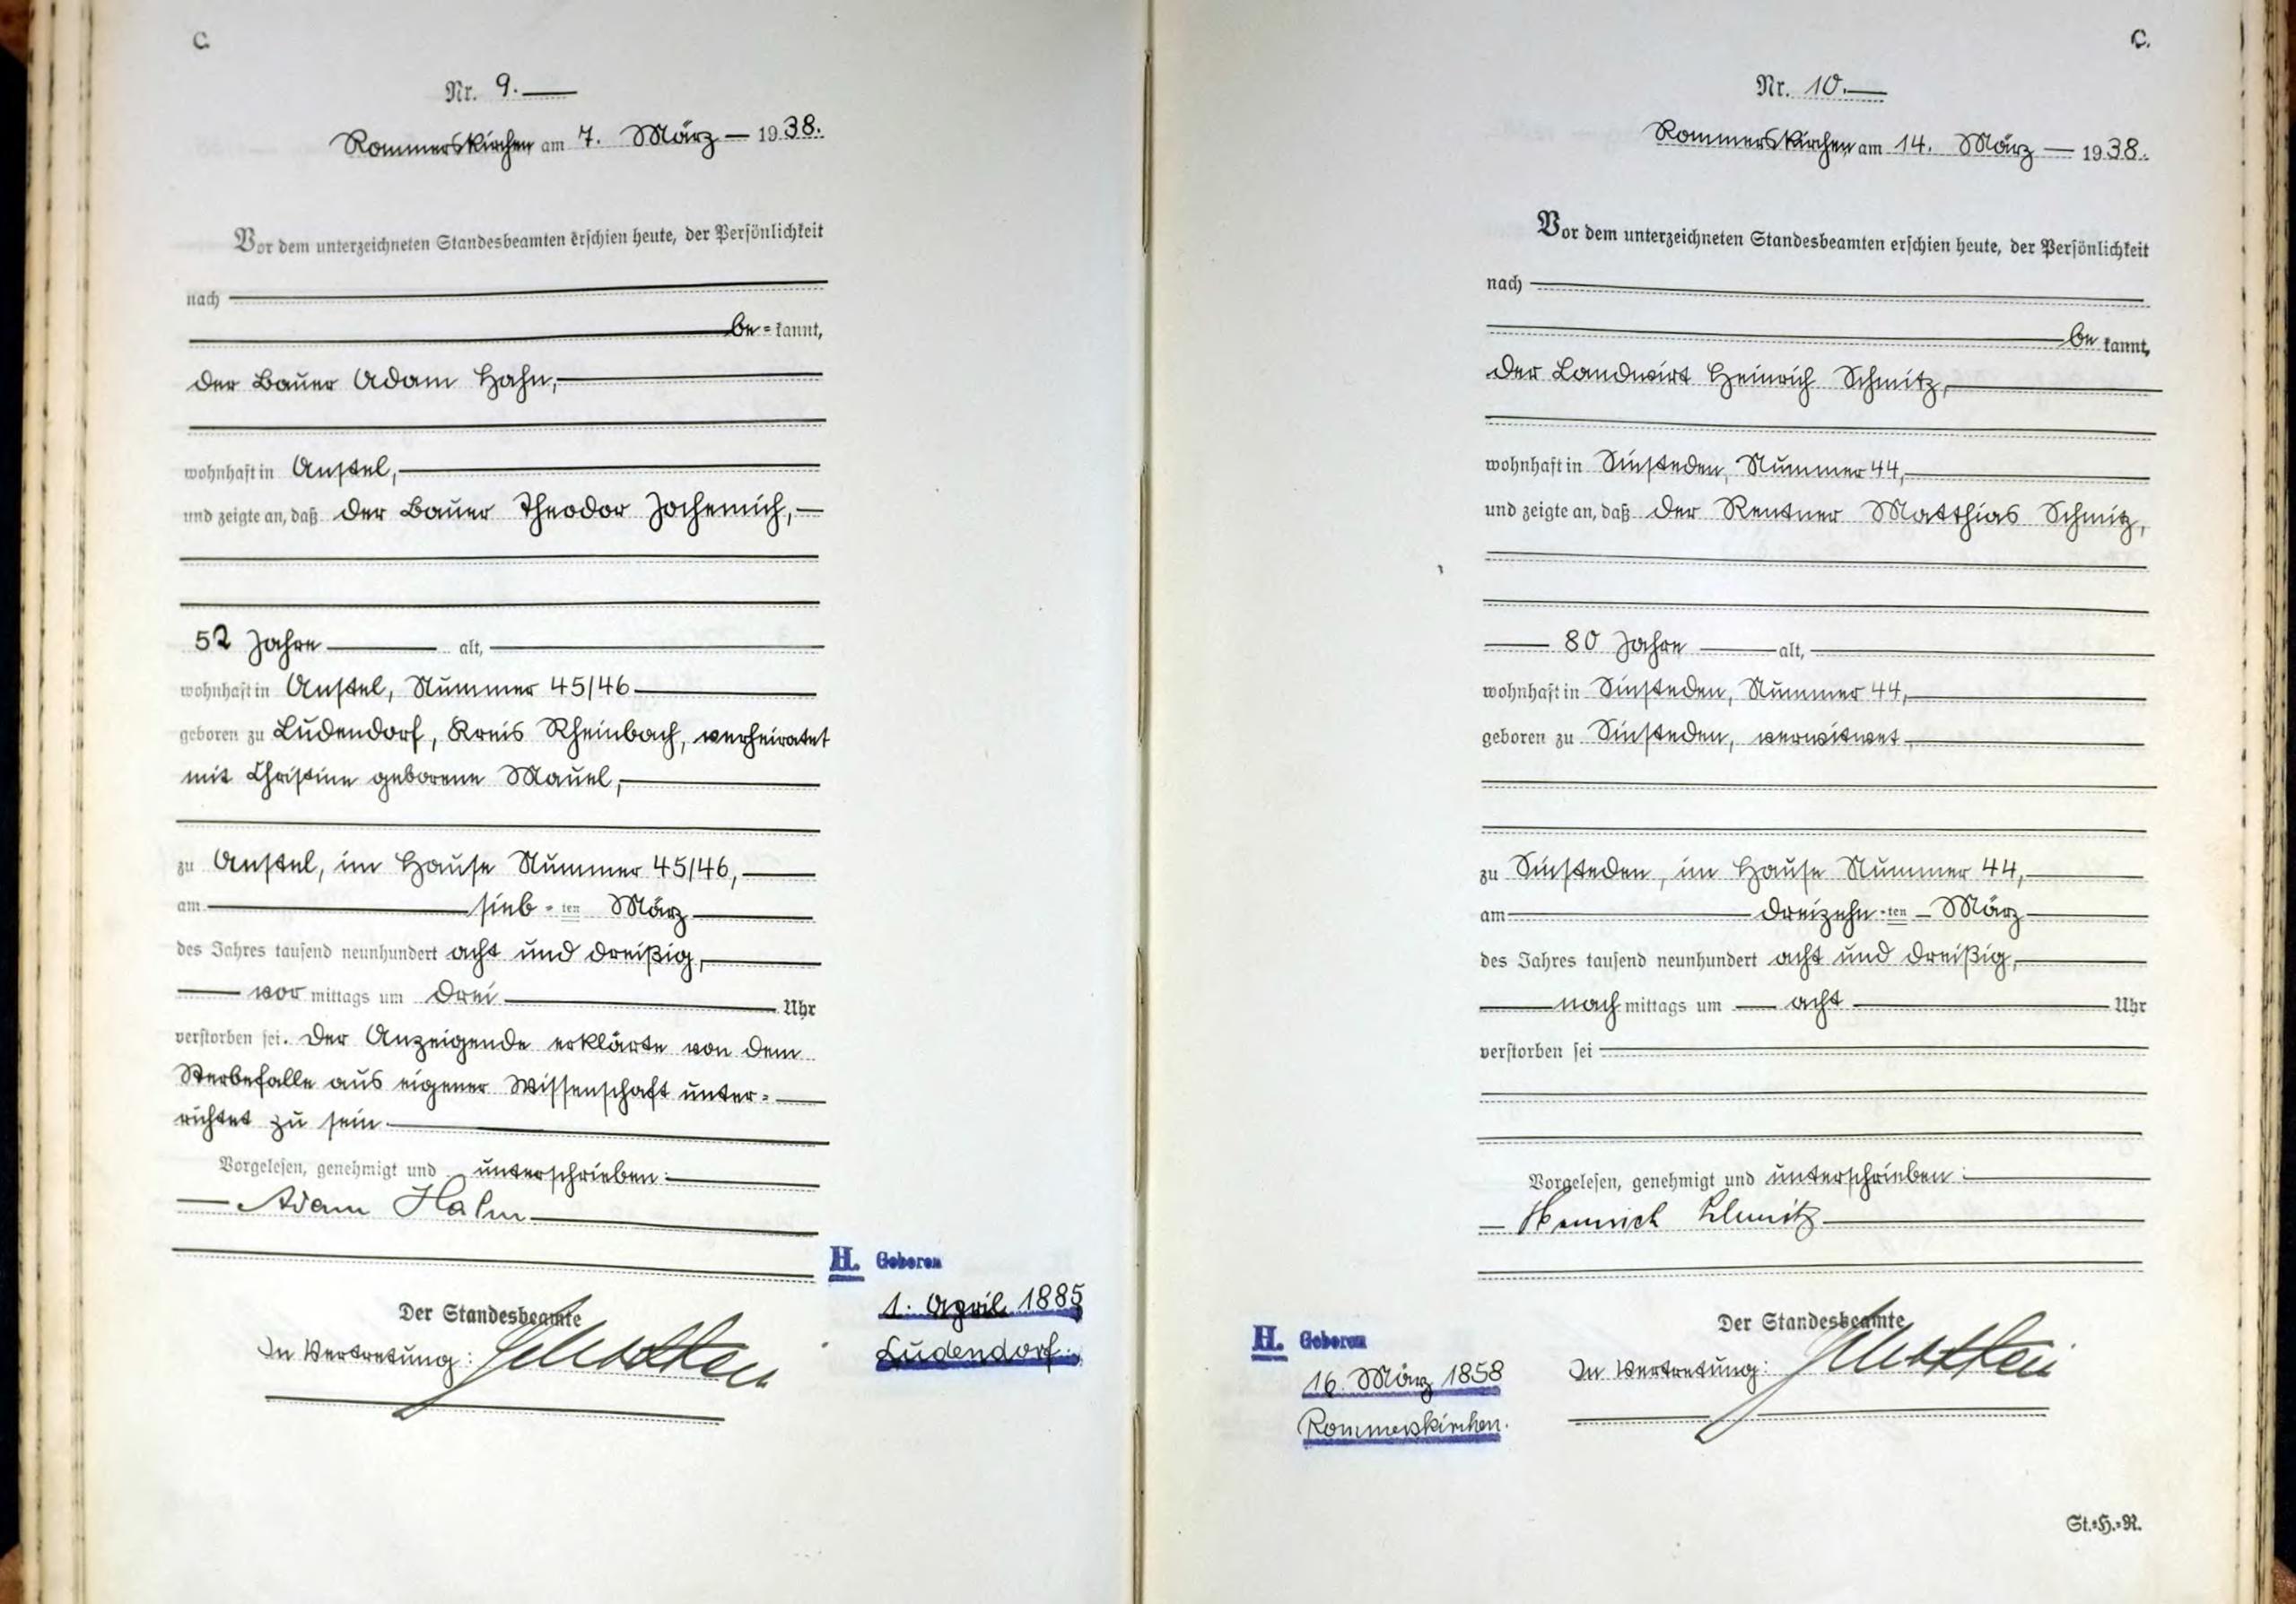 C.
Nr. 9.
Rommerskirchen am 7. März 1938.
Vor dem unterzeichneten Standesbeamten erschien heute, der Persönlichkeit
nach
be=kannt,
der Bauer Adam Hahn,
wohnhaft in Anstel,
und zeigte an, daß der Bauer Theodor Jochemich,
52 Jahre alt,
wohnhaft in Anstel, Nummer 45/46
geboren zu Ludendorf, Kreis Rheinbach, verheiratet
mit Christine geborene Mauel,
zu Anstel, im Hause Nummer 45/46,
am sieb-ten März
des Jahres tausend neunhundert acht und dreißig,
vor mittags um drei Uhr
verstorben sei. Der Anzeigende erklärte von dem
Sterbefalle aus eigener Wissenschaft unter=
richtet zu sein
Vorgelesen, genehmigt und unterschrieben:
Adam Hahn
Der Standesbeamte
In Vertretung:
H. Geboren
1. April 1885
Ludendorf.
C.
Nr. 10.
Rommerskirchen am 14. März 1938.
Vor dem unterzeichneten Standesbeamten erschien heute, der Persönlichkeit
nach
be kannt,
der Landwirt Heinrich Schmitz,
wohnhaft in Sinsteden, Nummer 44,
und zeigte an, daß der Rentner Matthias Schmitz,
80 Jahre alt,
wohnhaft in Sinsteden, Nummer 44,
geboren zu Sinsteden, verwitwet
zu Sinsteden, im Hause Nummer 44,
am dreizehn-ten März
des Jahres tausend neunhundert acht und dreißig,
nach mittags um acht Uhr
verstorben sei
Vorgelesen, genehmigt und unterschrieben:
Heinrich Schmitz
Der Standesbeamte
In Vertretung:
H. Geboren
16. März 1858
Rommerskirchen.
St.=H.=R.